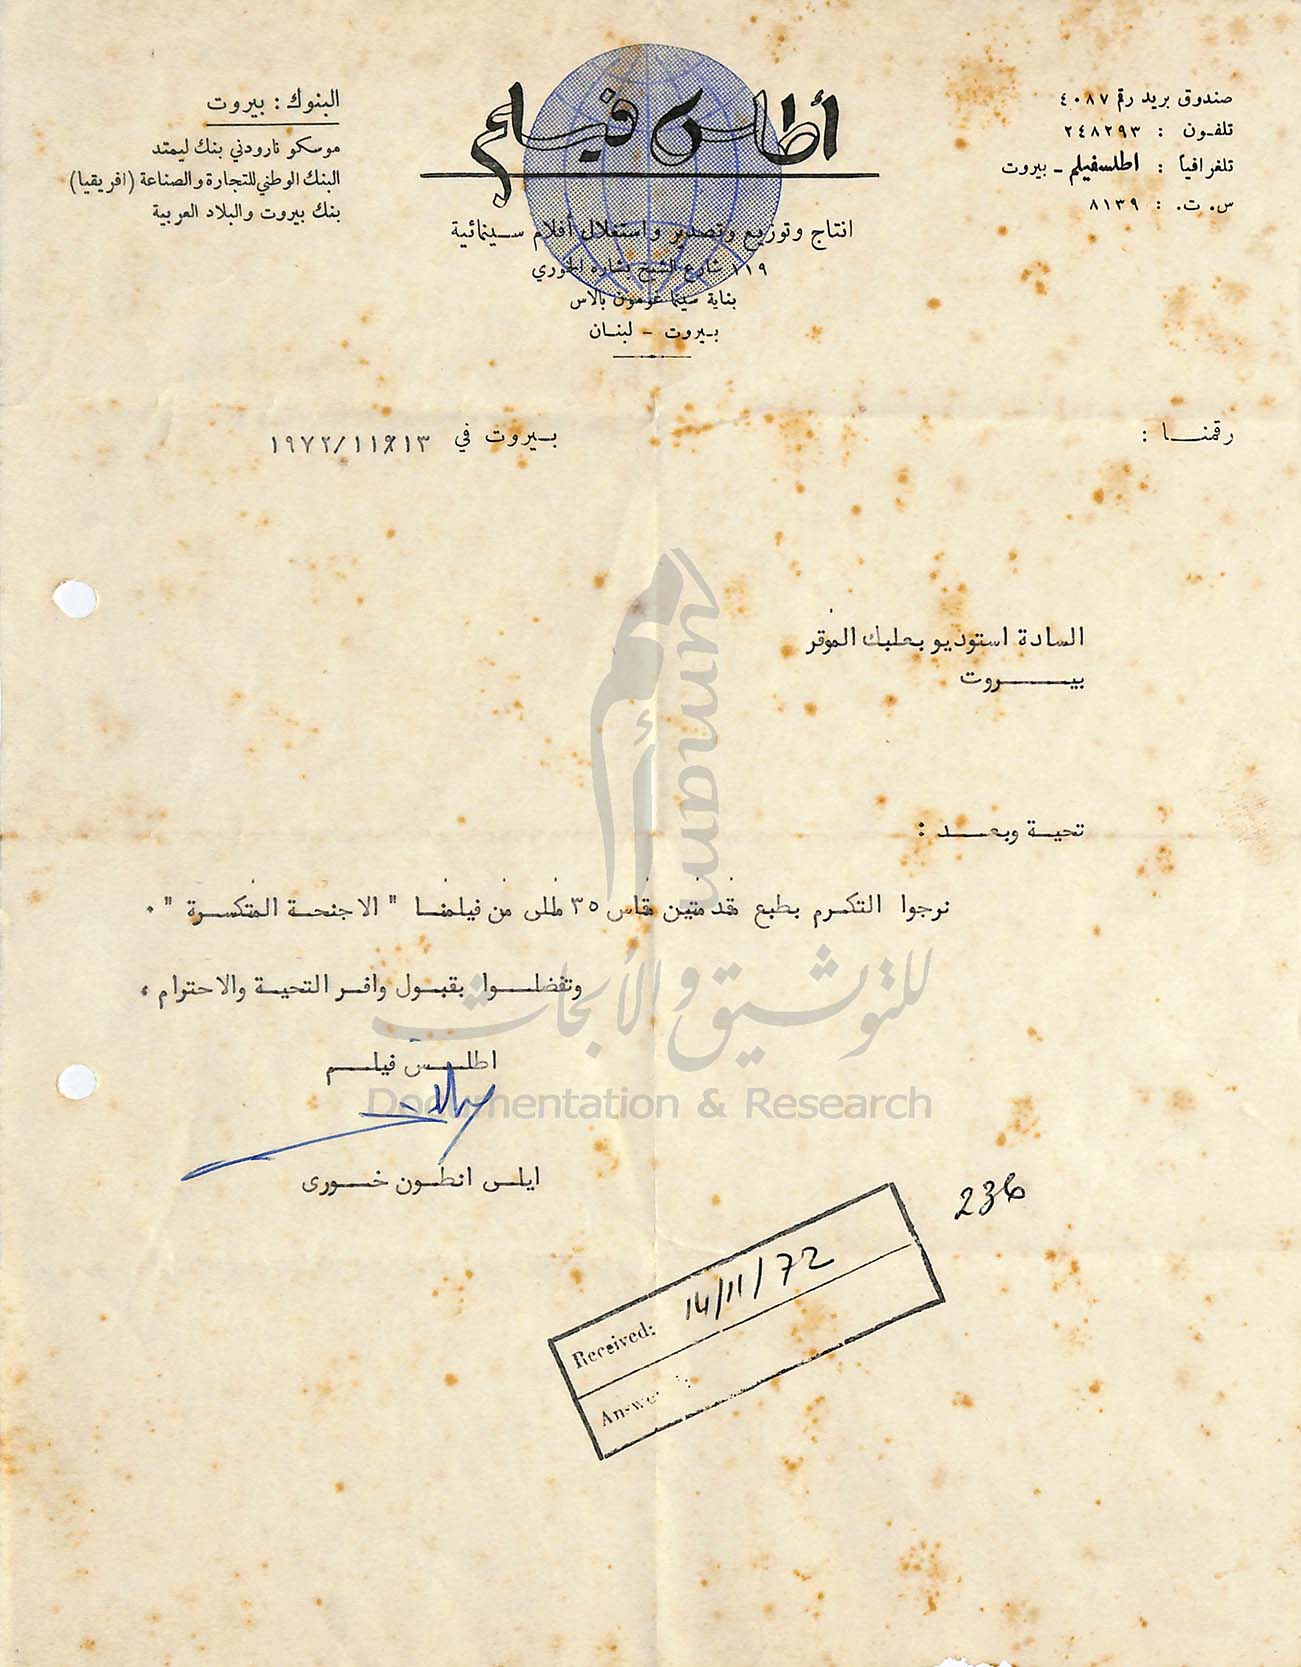 صندوق بريد رقم ٤٠٨٧
تلفـون : ٢٤٨٢٩٣
تلغرافياً : اطلسفيلم - بيروت
س. ت. : ٨١٣٩
أطلس فيلم
انتاج وتوزيع وتصدير واستغلال أفلام سينمائية
١١٩ شارع الشيخ بشاره الخوري
بناية سينما غومون بالاس
بـيروت - لبنـان
البنوك : بيروت
موسكو نارودني بنك ليمتد
البنك الوطني للتجارة والصناعة (افريقيا)
بنك بيروت والبلاد العربية
رقمنـــا :
بـيروت في ١٩٧٢/١١/١٣
السادة استوديو بعلبك الموقر
بيـــــروت
تحيـة وبعــــد :
نرجوا التكرم بطبع مقدمتين مقاس ٣٥ مللى من فيلمنـا " الاجنحة المتكسرة " .
وتفضلـــوا بقبـول وافـر التحيـة والاحترام ،
اطلــس فيلــم
ايلـى انطـون خـورى
236
Received: 14/11/72
أمم umam
للتوثيق والأبحاث
Documentation & Research